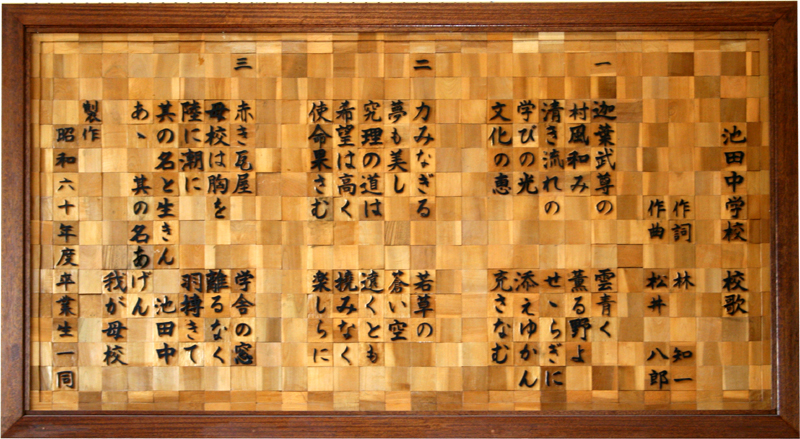 池田中学校　校歌
作詞　林　知一
作曲　松井　八郎
一
迦葉武尊の　雲青く
村風和み　薫る野よ
清き流れの　せゝらぎに
学びの光　添えゆかん
文化の恵　充さなむ
二
力みなぎる　若草の
夢も美し　蒼い空
究理の道は　遠くとも
希望は高く　撓みなく
使命果さむ　楽しらに
三
赤き瓦屋　学舎の窓
母校は胸を　離るなく
陸に潮に　羽搏きて
其の名と生きん　池田中
あゝ　其の名あげん　我が母校
製作
昭和六十年度卒業生一同